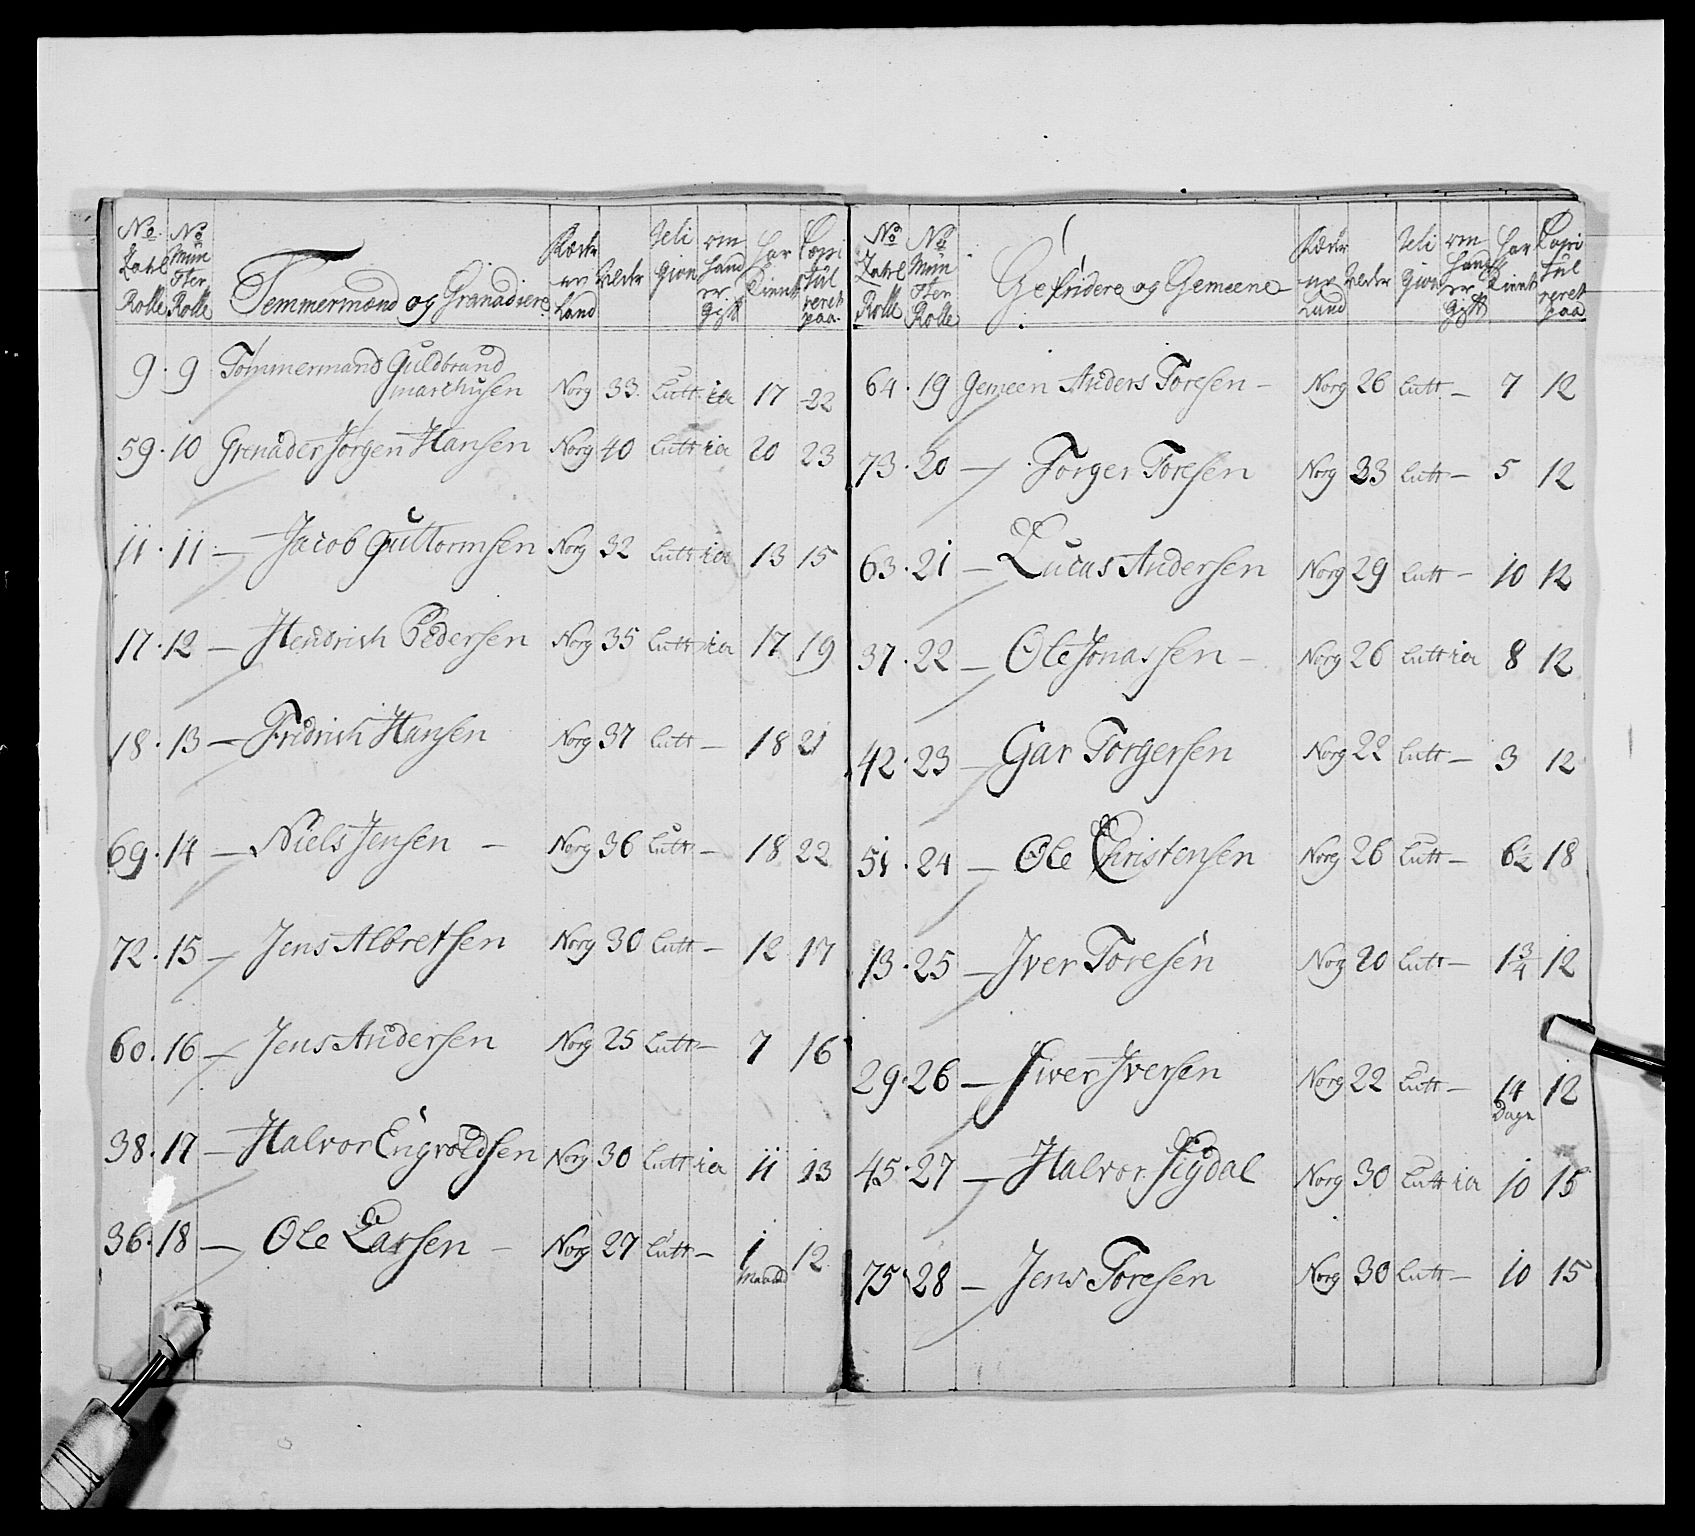 No Zahl Rolle | No Mün ster Rolle | Temmermænd og Granadiere | Føder ne Land | Alder | Reli gion | om hand er Gift | har Tient | Capi tul veret paa
9 · 9 Tømmermand Guldbrand
Marthusen Norg 33 Lutt ia 17 22
59 · 10 Grenader Jørgen Hansen Norg 40 Lutt ia 20 23
11 · 11 — Jacob Guttormsen Norg 32 Lutt ia 13 15
17 · 12 — Hendrich Pedersen Norg 35 Lutt ia 17 19
18 · 13 — Fredrich Hansen Norg 37 Lutt — 18 21
69 · 14 — Niels Jensen — Norg 36 Lutt — 18 22
72 · 15 — Jens Albretsen Norg 30 Lutt — 12 17
60 · 16 — Jens Andersen Norg 25 Lutt — 7 16
38 · 17 — Halvor Engvoldsen Norg 30 Lutt ia 11 13
36 · 18 — Ole Larsen — Norg 27 Lutt — 1 12
Maaned
No Zahl Rolle | No Mün ster Rolle | Gefridere og Gemeene | Land | Alder | Reli gion | om hand er Gift | har Tient | Capi tul veret paa
64 · 19 Gemeen Anders Toresen — Norg 26 Lutt — 7 12
73 · 20 — Torger Toresen Norg 33 Lutt — 5 12
63 · 21 — Lucas Andersen Norg 29 Lutt — 10 12
37 · 22 — Ole Jonassen — Norg 26 Lutt ia 8 12
42 · 23 — Gar Torgersen Norg 22 Lutt — 3 12
51 · 24 — Ole Christensen Norg 26 Lutt — 6½ 18
13 · 25 — Iver Toresen Norg 20 Lutt — 1¾ 12
29 · 26 — Siver Iversen Norg 22 Lutt — 14 12
Dage
45 · 27 — Halvor Sigdal Norg 30 Lutt ia 10 15
75 · 28 — Jens Toresen Norg 30 Lutt — 10 15